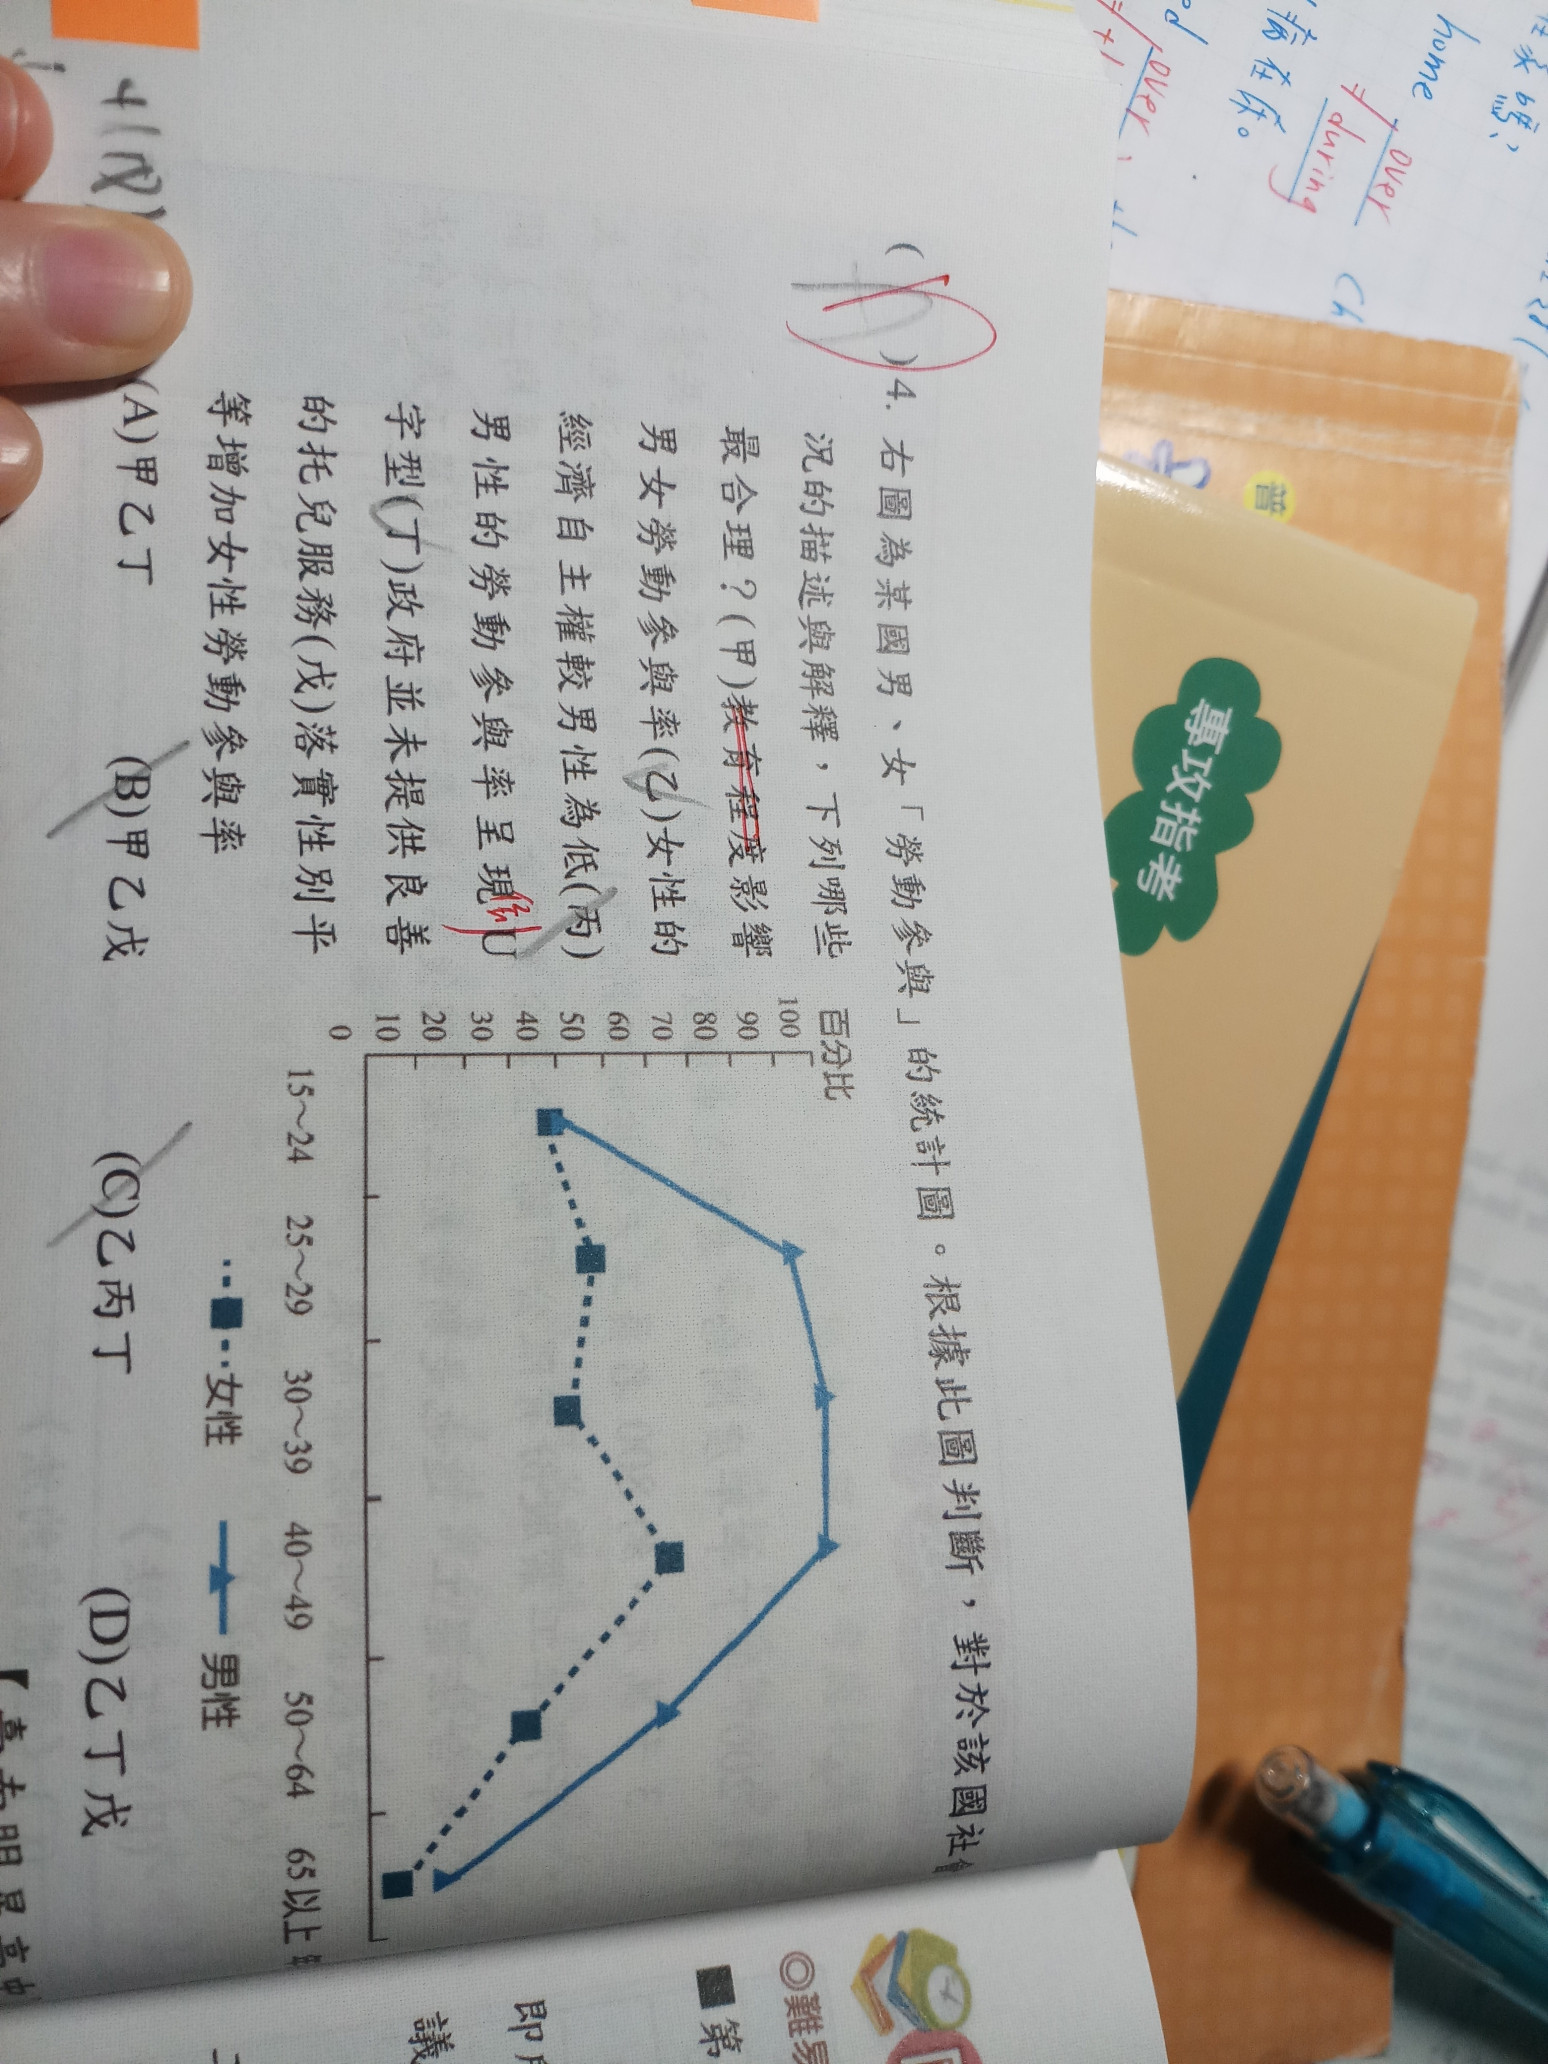 (D)4. 右圖為某國男、女「勞動參與」的統計圖。根據此圖判斷，對於該國社會
況的描述與解釋，下列哪些
最合理？(甲)教育程度影響
男女勞動參與率(乙)女性的
經濟自主權較男性為低(丙)
男性的勞動參與率呈現倒U
字型(丁)政府並未提供良善
的托兒服務(戊)落實性別平
等增加女性勞動參與率
(A)甲乙丁 (B)甲乙戊 (C)乙丙丁 (D)乙丁戊
百分比
100
90
80
70
60
50
40
30
20
10
0
15～24 25～29 30～39 40～49 50～64 65以上
女性 男性
◎難易
■第
議
專攻指考
普
home
over
during
over
病在床。